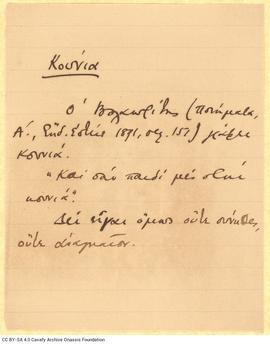 Κούνια
Ὁ Βαλαωρίτης (Ποιήματα,
Α΄., Ἔκδ. Ἑστίας 1891, σελ. 157) γράφει
κουνιά.
"Καὶ σὰν παιδὶ μὲς στὴ
κουνιά".
Δὲν εἶναι ὅμως οὔτε σύνηθες,
οὔτε ἀναγκαῖον.
CC BY-SA 4.0 Cavafy Archive Onassis Foundation